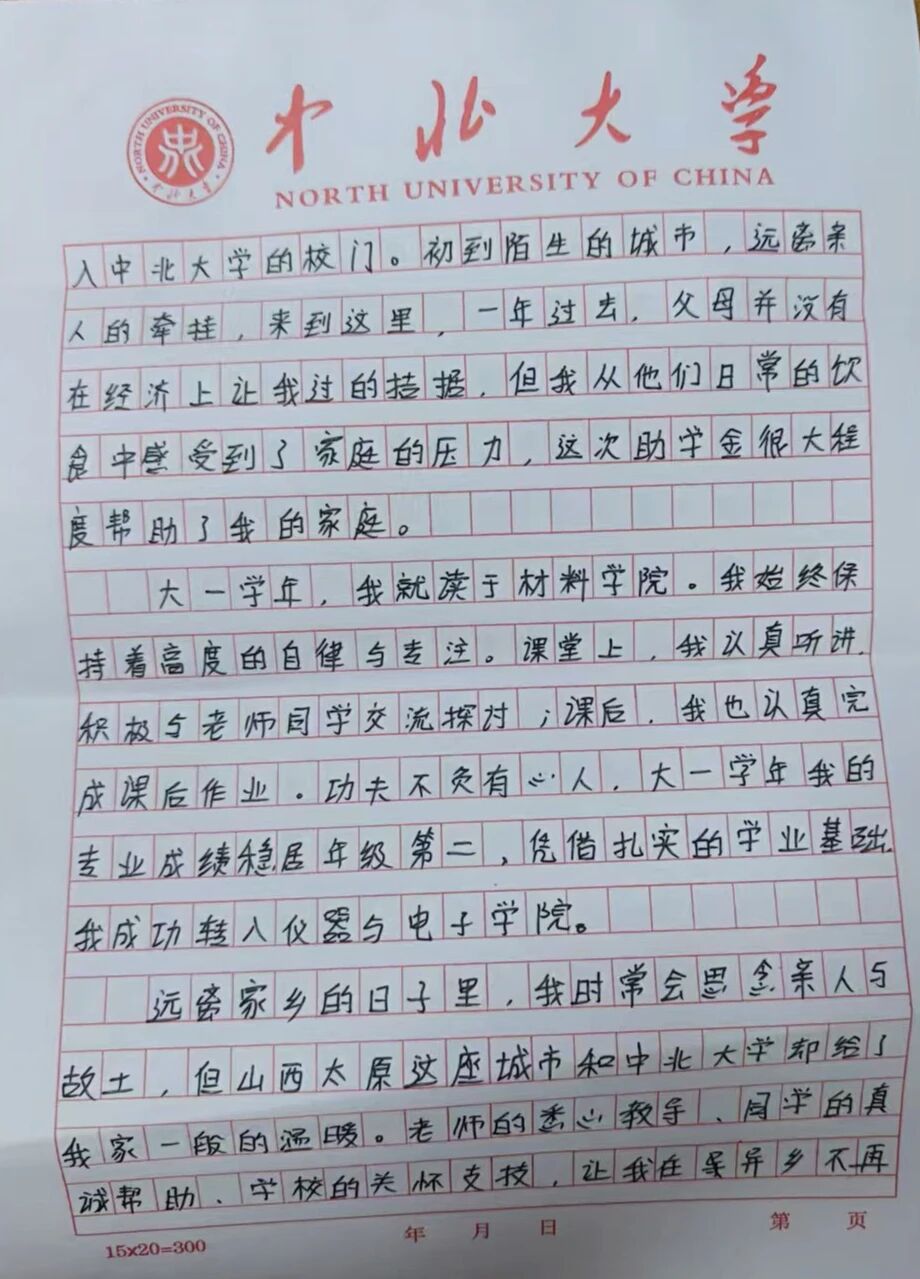 中北大学
NORTH UNIVERSITY OF CHINA
入中北大学的校门。初到陌生的城市，远离亲
人的牵挂，来到这里，一年过去，父母并没有
在经济上让我过的拮据，但我从他们日常的饮
食中感受到了家庭的压力，这次助学金很大程
度帮助了我的家庭。
大一学年，我就读于材料学院。我始终保
持着高度的自律与专注。课堂上，我认真听讲，
积极与老师同学交流探讨；课后，我也认真完
成课后作业。功夫不负有心人，大一学年我的
专业成绩稳居年级第二，凭借扎实的学业基础，
我成功转入仪器与电子学院。
远离家乡的日子里，我时常会思念亲人与
故土，但山西太原这座城市和中北大学却给了
我家一般的温暖。老师的悉心教导、同学的真
诚帮助、学校的关怀支技，让我在异乡不再
15x20=300 年 月 日 第 页